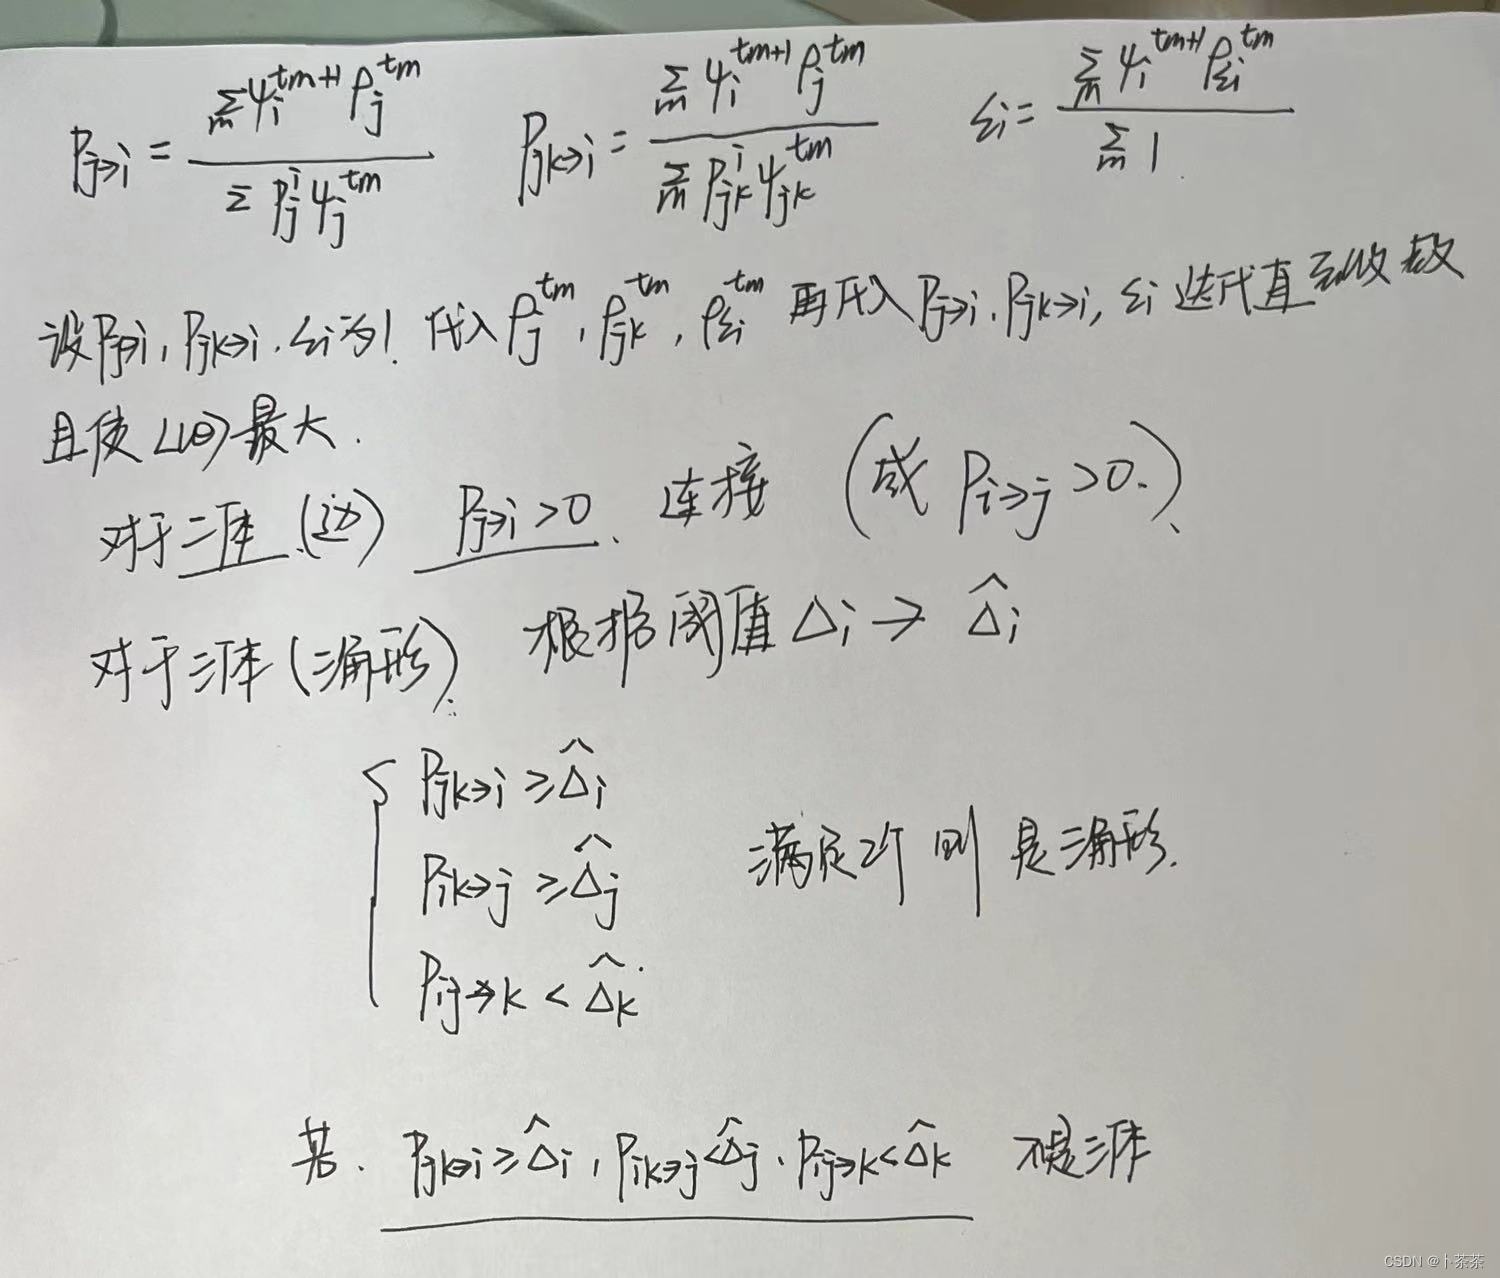 P_{j→i} = \frac{\sum_m ψ_i^{t_m+1} ρ_j^{t_m}}{\sum P_j^i ψ_j^{t_m}}  P_{jk→i} = \frac{\sum_m ψ_i^{t_m+1} ρ_j^{t_m}}{\sum_m P_{jk}^i ψ_{jk}^{t_m}}  ε_i = \frac{\sum_m ψ_i^{t_m+1} ρ_{ε_i}^{t_m}}{\sum_m 1}.
设P_{j→i}, P_{jk→i}, ε_i为! 代入ρ_j^{t_m}, ρ_{jk}^{t_m}, ρ_{ε_i}^{t_m} 再代入P_{j→i}, P_{jk→i}, ε_i 迭代直至收敛
且使L(θ)最大.
对于二体(边) P_{j→i}>0. 连接 (或 P_{i→j}>0.)、
对于三体(三角形). 根据阈值 Δ_i → \hat{Δ}_i
P_{jk→i} ≥ \hat{Δ}_i
P_{ik→j} ≥ \hat{Δ}_j 满足2个 则 是三角形.
P_{ij→k} < \hat{Δ}_k
若. P_{jk→i} ≥ \hat{Δ}_i, P_{ik→j} < \hat{Δ}_j, P_{ij→k} < \hat{Δ}_k 不是三体
CSDN @卜茶茶